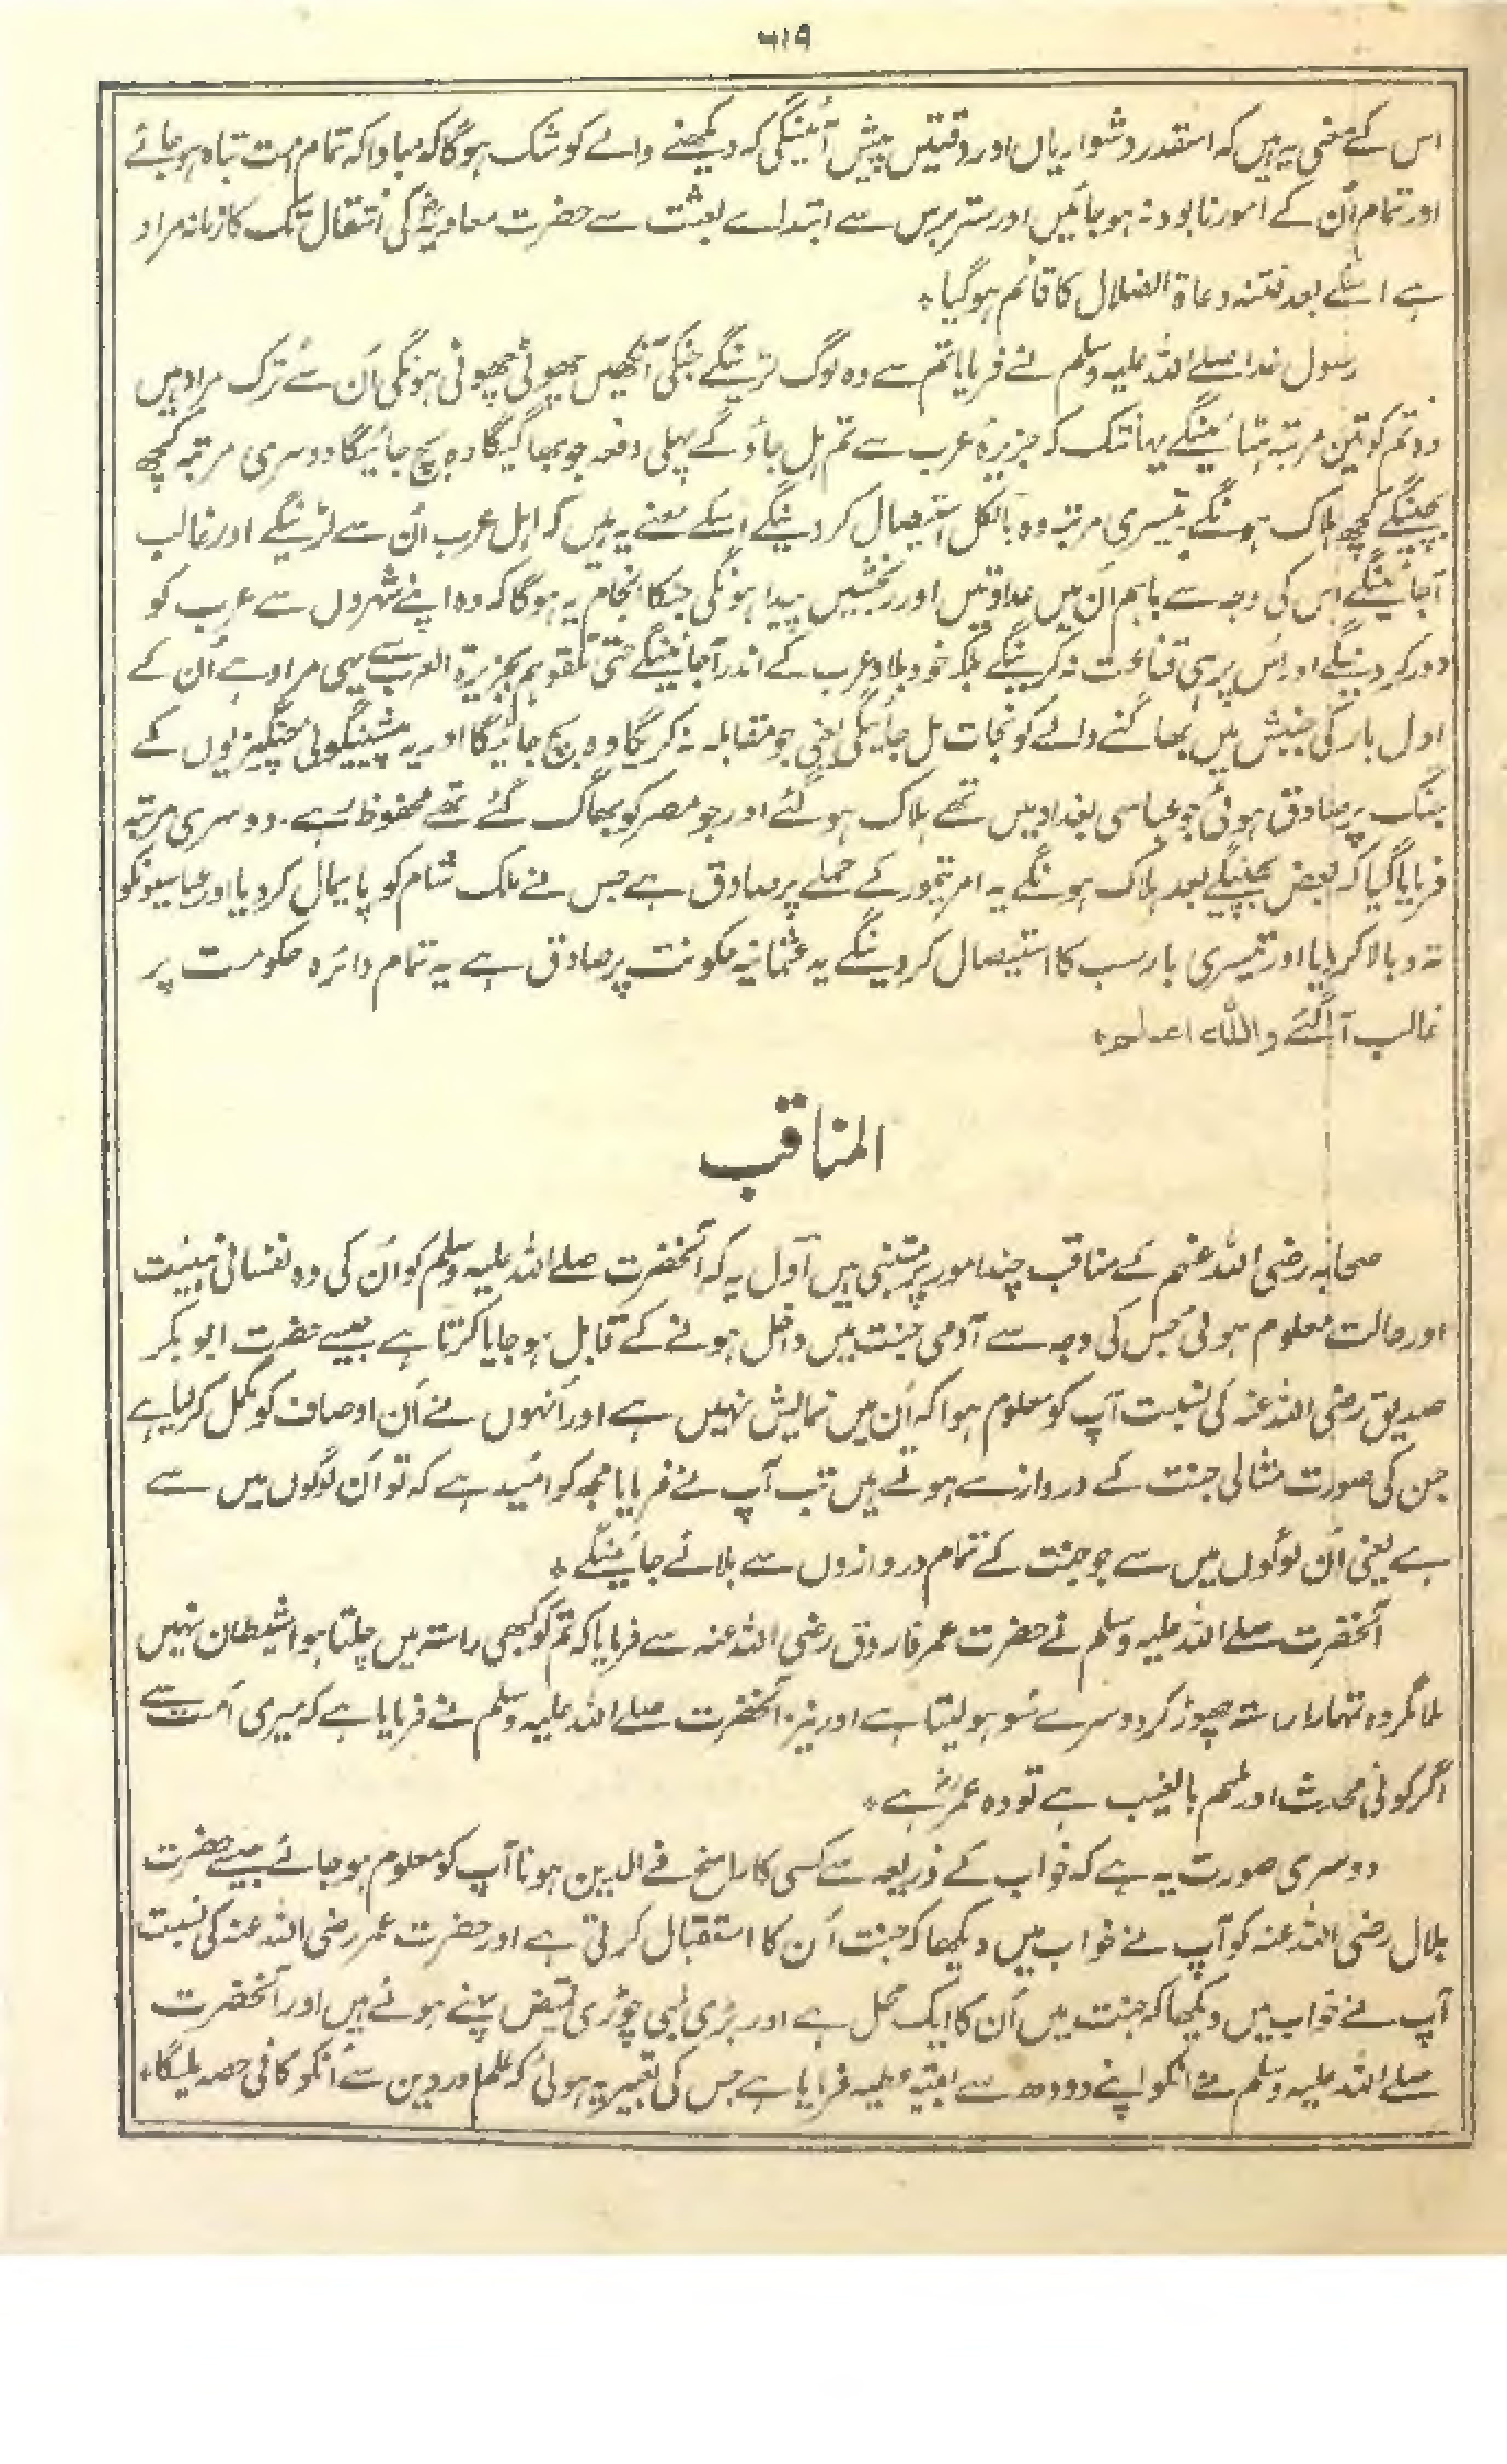 ۶۱۹
اس کے معنی یہ ہیں کہ اسقدر دشواریاں اور دقتیں پیش آئینگی کہ دیکھنے والے کو شک ہوگا کہ مبادا کہ تمام امت تباہ ہو جائے
اور تمام اُن کے امور نابود نہ ہو جائیں اور ستر برس سے ابتداے بعثت سے حضرت معاویہؓ کی انتقال تک کا زمانہ مراد
ہے اسکے بعد فتنہ دعاۃ الضلال کا قائم ہوگیا *
رسول خدا صلے اللہ علیہ وسلم نے فرمایا تم سے وہ لوگ لڑینگے جنکی آنکھیں چھوٹی چھوٹی ہونگی اُن سے تُرک مراد ہیں
وہ تم کو تین مرتبہ ہٹائینگے یہانتک کہ جزیرۂ عرب سے تم مل جاؤ گے پہلی دفعہ جو بھاگیگا وہ بچ جائیگا دوسری مرتبہ کچھ
بچینگے کچھ ہلاک ہونگے تیسری مرتبہ وہ بالکل استیصال کر دینگے اسکے معنے یہ ہیں کہ اہل عرب اُن سے لڑینگے اور غالب
آجائینگے اس کی وجہ سے باہم اُن میں عداوتیں اور رنجشیں پیدا ہونگی جسکا انجام یہ ہوگا کہ وہ اپنے شہروں سے عرب کو
دور کر دینگے اور اُس پر ہی قناعت نہ کرینگے بلکہ خود بلاد عرب کے اندر آجائینگے حتی تلحقوہم بجزیرۃ العرب سے یہی مراد ہے اُن کے
اول بار کی جنبش میں بھاگنے والے کو نجات مل جائیگی یعنی جو مقابلہ نہ کریگا وہ بچ جائیگا اور یہ پیشینگوئی چنگیزیوں کے
جنگ پر صادق ہوئی جو عباسی بغداد میں تھے ہلاک ہوگئے اور جو مصر کو بھاگ گئے تھے محفوظ رہے۔ دوسری مرتبہ
فرمایا گیا کہ بعض بچینگے بعد ہلاک ہونگے یہ امر تیمور کے حملے پر صادق ہے جس نے ملک شام کو پائمال کر دیا اور عباسیونکو
تہ و بالا کر دیا اور تیسری بار سب کا استیصال کر دینگے یہ عثمانیہ حکومت پر صادق ہے یہ تمام دائرہ حکومت پر
غالب آگئے واللہ اعلم *
المناقب
صحابہ رضی اللہ عنہم کے مناقب چند امور پر مبتنی ہیں اوّل یہ کہ آنحضرت صلے اللہ علیہ وسلم کو اُن کی وہ نفسانی ہیئت
اور حالت معلوم ہوئی جس کی وجہ سے آدمی جنت میں داخل ہونے کے قابل ہو جایا کرتا ہے جیسے حضرت ابو بکر
صدیق رضی اللہ عنہ کی نسبت آپ کو معلوم ہوا کہ اُن میں نمایش نہیں ہے اور اُنہوں نے اُن اوصاف کو مکمل کر لیا ہے
جن کی صورت مثالی جنت کے دروازے ہوتے ہیں تب آپ نے فرمایا مجھ کو امید ہے کہ تو اُن لوگوں میں سے
ہے یعنی اُن لوگوں میں سے جو جنت کے تمام دروازوں سے بلائے جائینگے *
آنحضرت صلے اللہ علیہ وسلم نے حضرت عمر فاروق رضی اللہ عنہ سے فرمایا کہ تم کو کبھی راستہ میں چلتا ہوا شیطان نہیں
ملا مگر وہ تمہارا راستہ چھوڑ کر دوسرے سُو ہو لیتا ہے اور نیز آنحضرت صلے اللہ علیہ وسلم نے فرمایا ہے کہ میری امت سے
اگر کوئی محدث اور ملہم بالغیب ہے تو وہ عمرؓ ہے *
دوسری صورت یہ ہے کہ خواب کے ذریعہ سے کسی کا راسخ فے الدین ہونا آپ کو معلوم ہو جائے جیسے حضرت
بلال رضی اللہ عنہ کو آپ نے خواب میں دیکھا کہ جنت اُن کا استقبال کرتی ہے اور حضرت عمر رضی اللہ عنہ کی نسبت
آپ نے خواب میں دیکھا کہ جنت میں اُن کا ایک محل ہے اور بڑی لمبی چوڑی قمیض پہنے ہوئے ہیں اور آنحضرت
صلے اللہ علیہ وسلم نے انکو اپنے دودھ سے بقیہ عطیہ فرمایا ہے جس کی تعبیر یہ ہوئی کہ علم اور دین سے اُنکو کافی حصہ ملیگا *